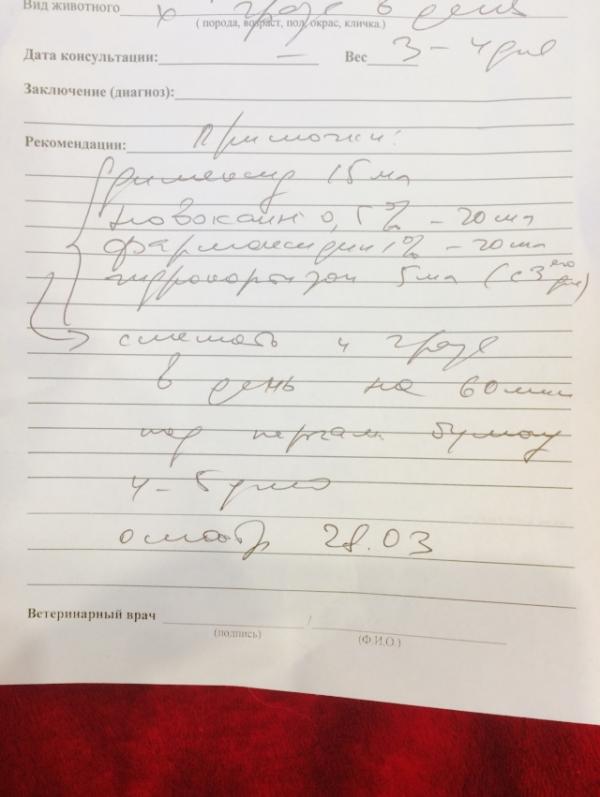 Вид животного х 3 раза в день
( порода, возраст, пол, окрас, кличка.)
Дата консультации: — Вес 3 – 4 дня
Заключение (диагноз):
Рекомендации: Примочки:
димексид 15 мл
Новокаин 0,5% – 20 мл
1% – 20 мл
гидрокортизон 5 мл (с 3его дня)
смешать 4 раза
в день на 60 мин
под пергам бумагу
4 – 5 дней
осмотр 28.03
Ветеринарный врач /
(подпись) (Ф.И.О.)